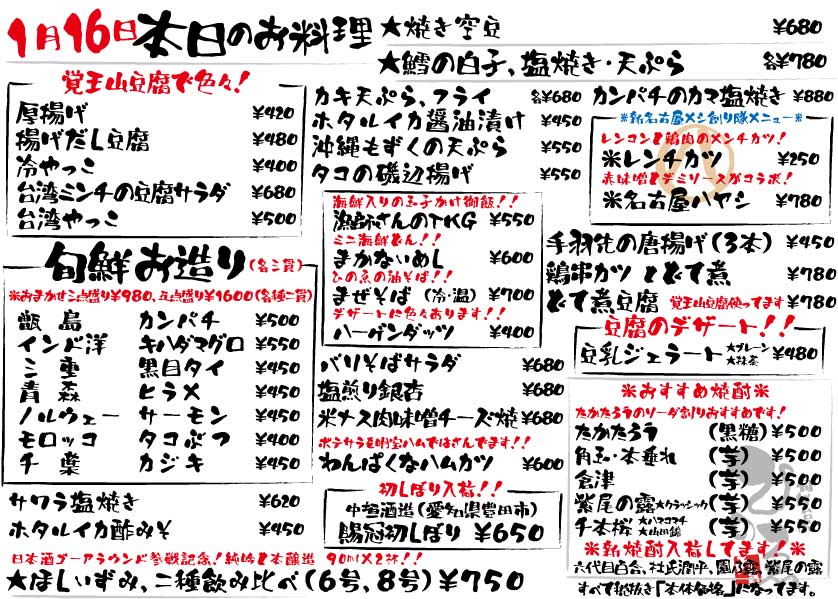 1月16日本日のお料理
★焼き空豆 ¥680
★鱈の白子、塩焼き・天ぷら 各¥780
覚王山豆腐で色々!
厚揚げ ¥420
揚げだし豆腐 ¥480
冷やっこ ¥400
台湾ミンチの豆腐サラダ ¥680
台湾やっこ ¥500
カキ天ぷら、フライ 各¥680
ホタルイカ醤油漬け ¥450
沖縄もずくの天ぷら ¥550
タコの磯辺揚げ ¥550
カンパチのカマ塩焼き ¥880
※新名古屋メシ創り隊メニュー※
レンコンと鶏肉のメンチカツ!
※レンチカツ ¥250
赤味噌とデミソースがコラボ!
※名古屋ハヤシ ¥780
旬鮮お造り(各二貫)
※おまかせ三点盛り¥980、五点盛り¥1600(各種二貫)
甑島 カンパチ ¥500
インド洋 キハダマグロ ¥550
三重 黒目タイ ¥450
青森 ヒラメ ¥450
ノルウェー サーモン ¥450
モロッコ タコぶつ ¥400
千葉 カジキ ¥450
サワラ塩焼き ¥620
ホタルイカ酢みそ ¥450
海鮮入りの玉子かけ御飯!!
漁師さんのTKG ¥550
ミニ海鮮どん!!
まかないめし ¥600
ひの魚の油そば!!
まぜそば (冷・温) ¥700
デザートに色々あります!!
ハーゲンダッツ ¥400
バリそばサラダ ¥680
塩煎り銀杏 ¥680
米ナス肉味噌チーズ焼 ¥680
ポテサラを明宝ハムではさんでます!!
わんぱくなハムカツ ¥600
初しぼり入荷!!
中垣酒造(愛知県豊田市)
賜冠初しぼり ¥650
手羽先の唐揚げ(3本) ¥450
鶏串カツ とどて煮 ¥780
どて煮豆腐 覚王山豆腐使ってます ¥780
豆腐のデザート!!
豆乳ジェラート ★プレーン ★抹茶 ¥480
※おすすめ焼酎※
たかたろうのソーダ割りおすすめです!
たかたろう (黒糖) ¥500
角玉・本垂れ (芋) ¥500
倉津 (芋) ¥500
紫尾の露★クラッシック(芋) ¥550
千本桜 ★ハマコマチ ★山田錦 (芋) ¥550
※新焼酎入荷してます!※
六代目百合、杜氏潤平、園乃露、紫尾の露
すべて税抜き「本体価格」になってます。
日本酒ゴーアラウンド参戦記念!純吟と本醸造 90ml×2杯!!
★ほしいずみ、二種飲み比べ(6号、8号) ¥750